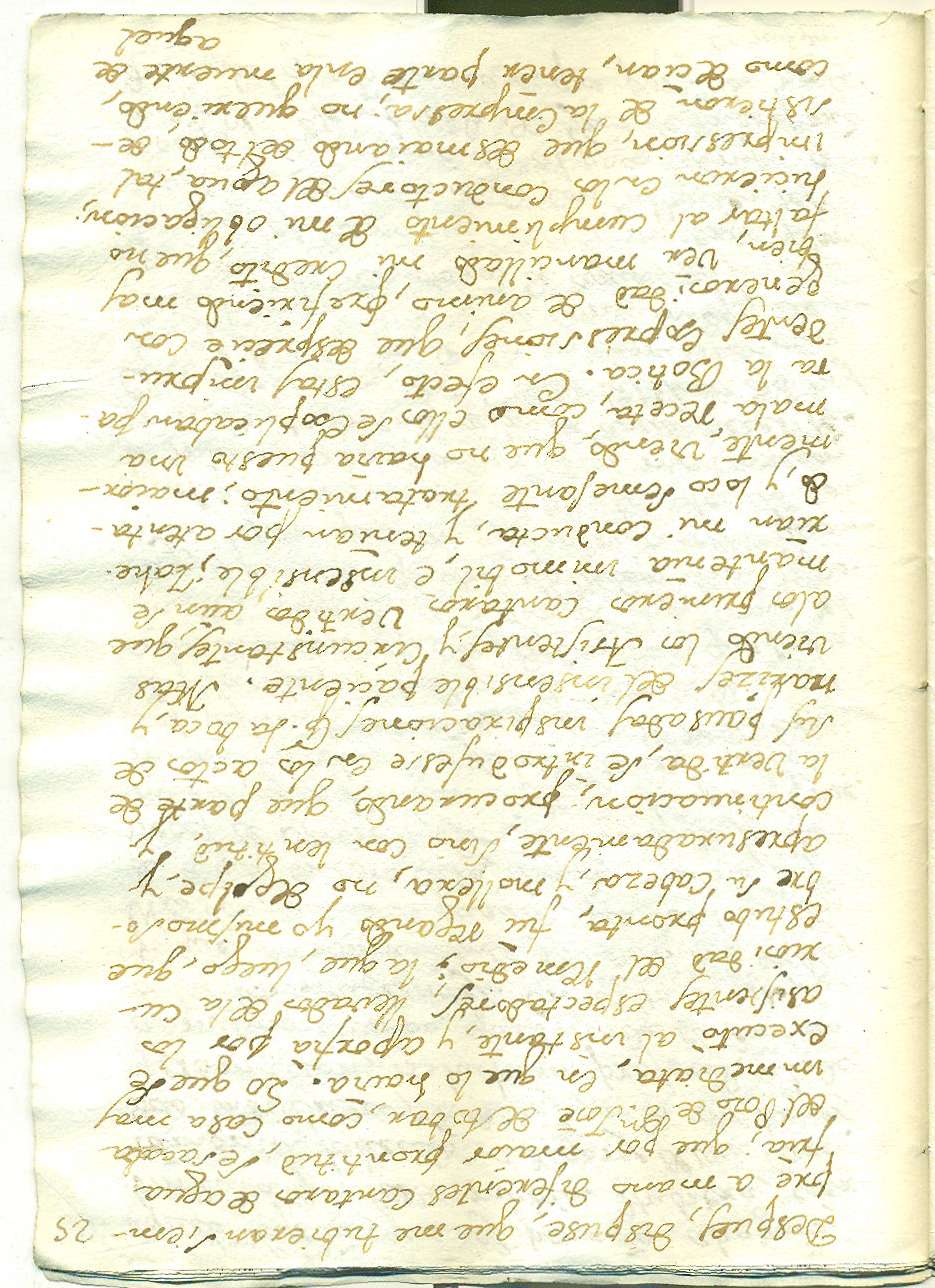 25
Despues, dispuse, que me tubieran siem-
pre a mano diferentes Cantaros de agua
fria, que por maior prontitud, se sacaba
del Pozo de Dn. Jose de tobar, como Casa mas
immediata, en que lo havia. Lo que se
executó al instante, y aporfia por los
asistentes espectadores, llevados de la cu-
riosidad del Remedio; la que, luego, que
estubo pronta, fui regando yo mismo so-
bre su Cabeza, y mollera, no de golpe, y
apresuradamente, sino con lentitud, y
continuacion; procurando, que parte de
la vertida, se introdujesse en los actos de
sus pausadas inspiraciones pr. la boca, y
narizes del insensible paciente. Mas
viendo los Asistentes, y Circunstantes, que
alos primeros Cantaros vertidos, aun se
mantenia immobil, e insensible, zahe-
rian mi Conducta, y tenian por atenta-
do, y loco semejante tratamiento; maior-
mente, viendo, que no havia puesto una
mala receta, como ellos se Explicaban pa-
ra la Botica. En efecto, estas impru-
dentes Expressiones, que desprecie con
generosidad de animo, prefiriendo mas
bien, ver mancillado mi Credito, que no
faltar al cumplimiento de mi obligacion;
hicieron enlos Conductores del agua, tal
impression, que desmaiando del todo de-
sistieron de la Empressa; no queriendo,
como decian, tener parte enla muerte de
aquel